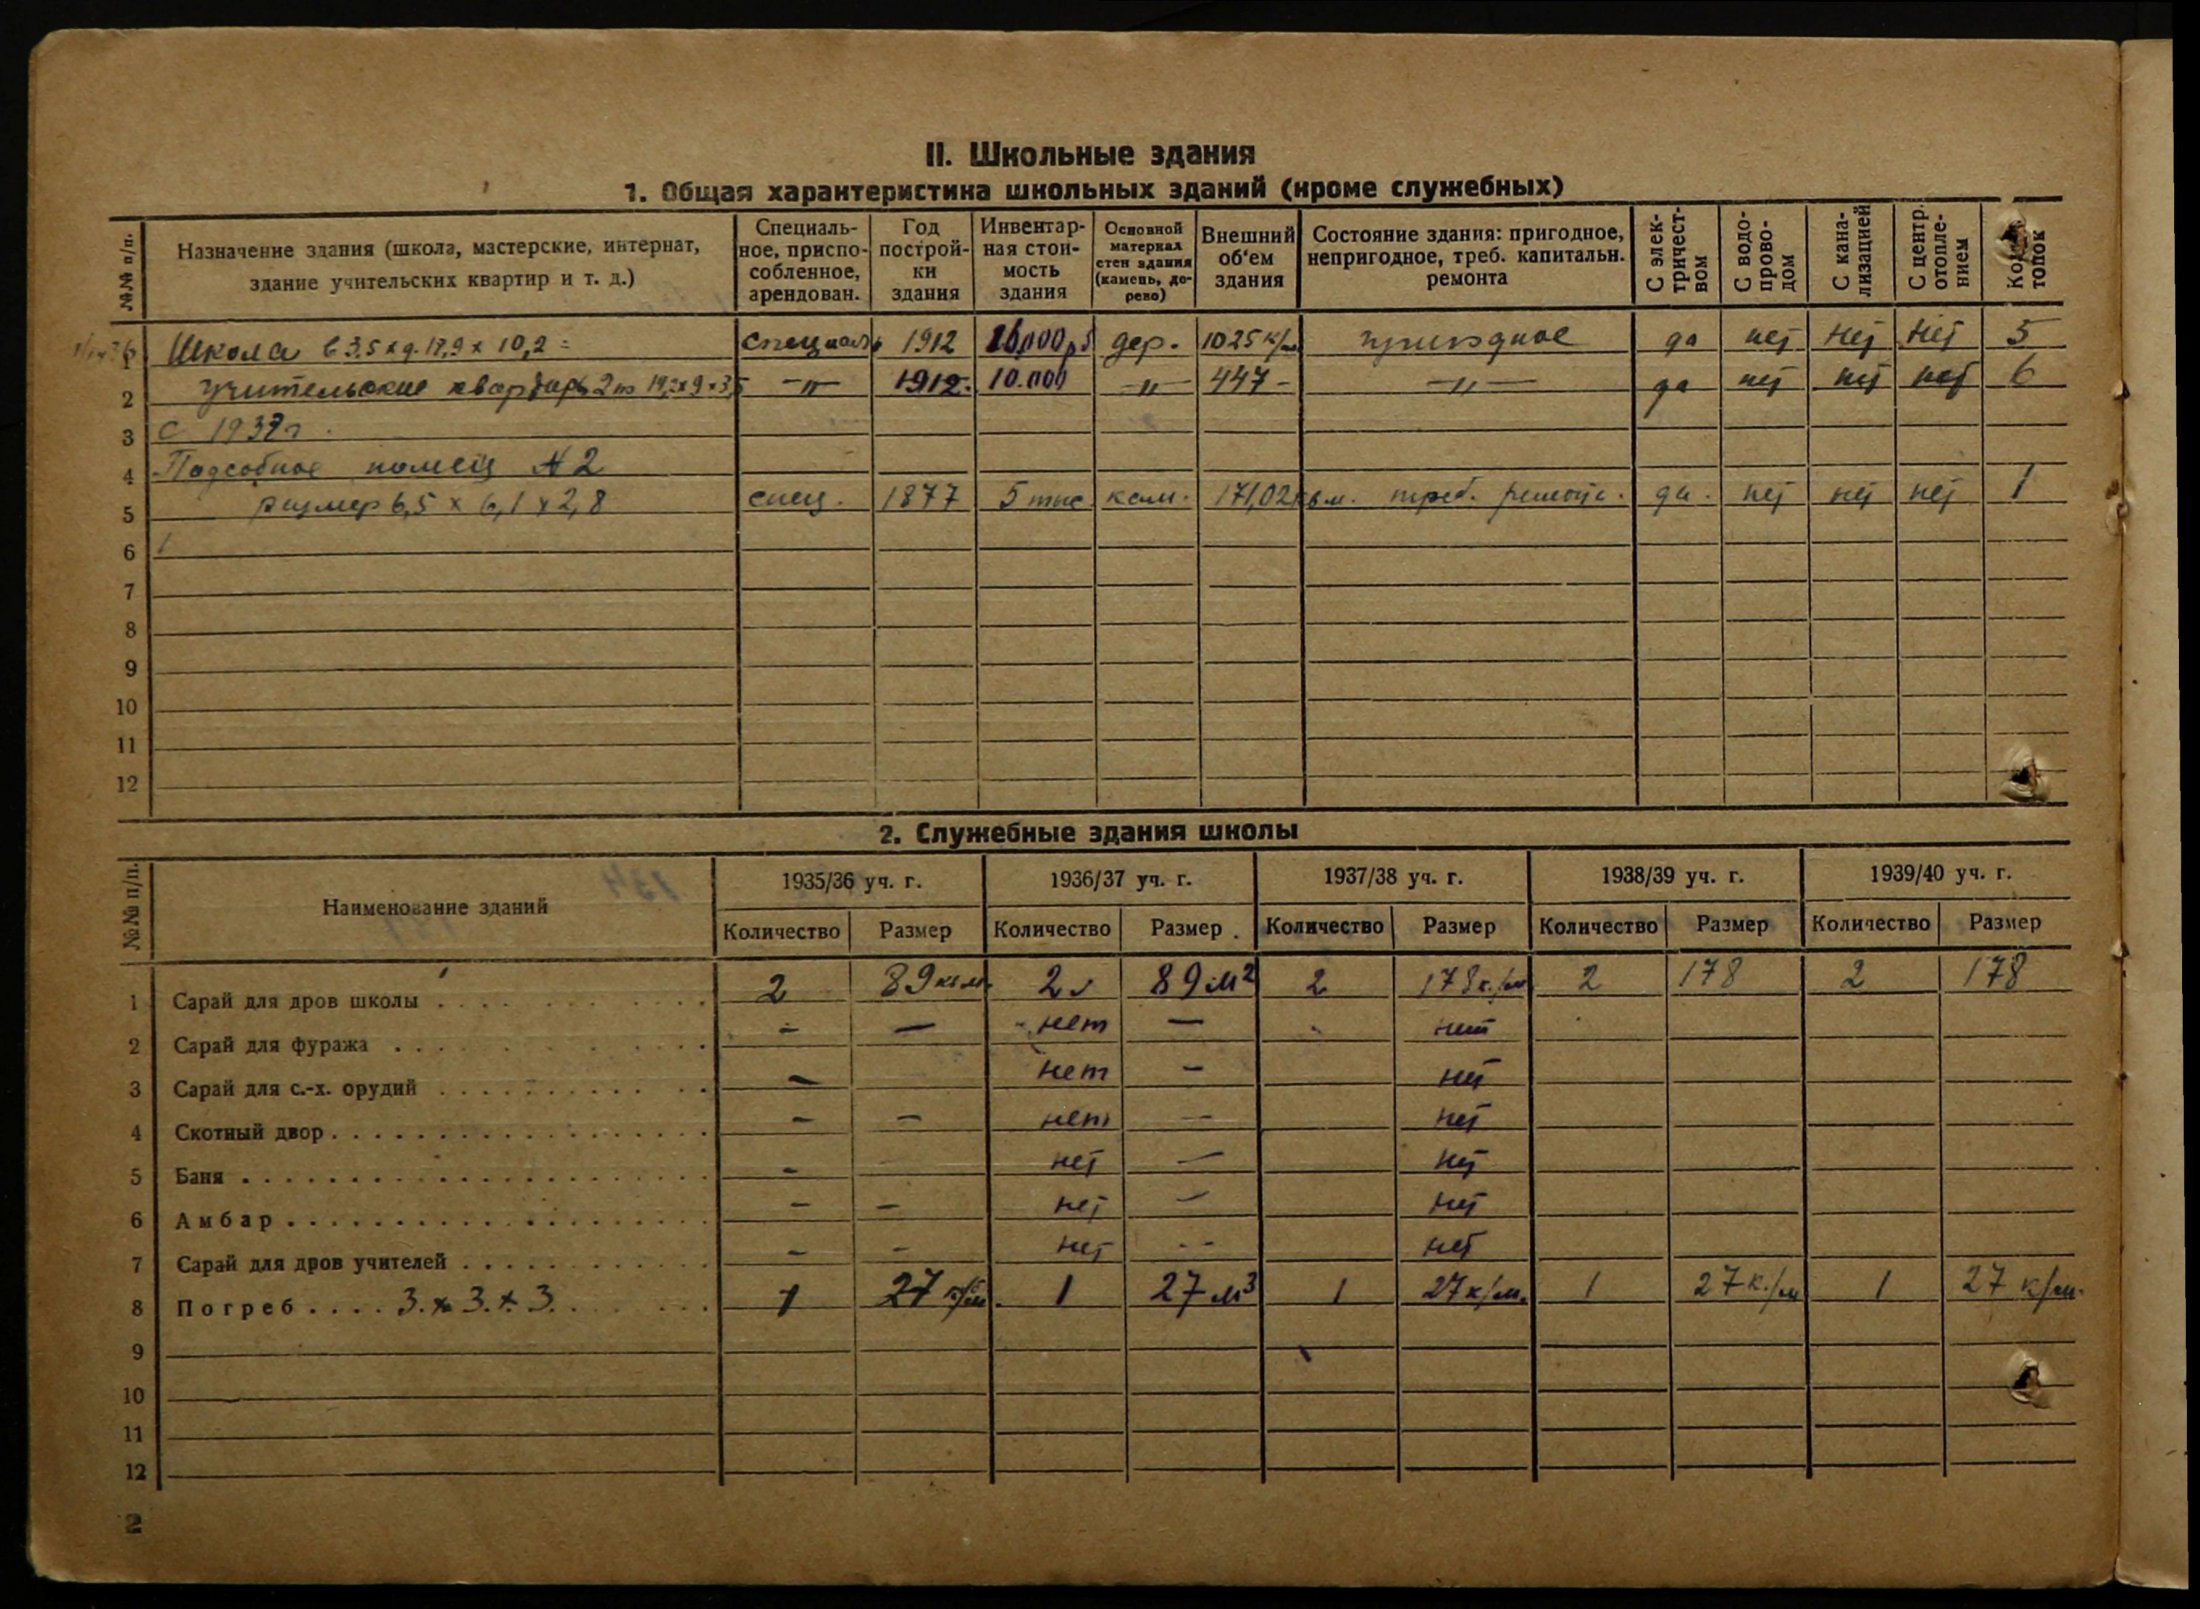 II. Школьные здания
1. Общая характеристика школьных зданий (кроме служебных)
№№ п/п. Назначение здания (школа, мастерские, интернат, здание учительских квартир и т. д.) Специаль-ное, приспо-собленное, арендован. Год построй-ки здания Инвентар-ная стои-мость здания Основной материал стен здания (камень, де-рево) Внешний об‘ем здания Состояние здания: пригодное, непригодное, треб. капитальн. ремонта С элек-тричест-вом С водо-прово-дом С кана-лизацией С центр. отопле-нием топок
1 Школа в 3,5 х д. 18,9 х 10,2 = специаль 1912 дер. 1025 к/м пригодное да нет нет нет 5
2 Учительские квартиры 19,2 х 9 х 3,5 —"— 1912. 10.000 —"— 447 — —"— да нет нет нет 6
3 С 1937 г.
4 Подсобное помещ № 2
5 размер 6,5 х 6,1 х 2,8 спец. 1877 5 тыс кам. 171,02 кв м. треб. ремонт. да. нет нет нет 1
6
7
8
9
10
11
12
2. Служебные здания школы
№№ п/п. Наименование зданий 1935/36 уч. г. 1936/37 уч. г. 1937/38 уч. г. 1938/39 уч. г. 1939/40 уч. г.
Количество Размер Количество Размер Количество Размер Количество Размер Количество Размер
1 Сарай для дров школы 2 89 кв м. 2 89 м² 2 178 к./м 2 178 2 178
2 Сарай для фуража - — нет — нет
3 Сарай для с.-х. орудий — нет — нет
4 Скотный двор — — нет — нет
5 Баня — нет — нет
6 Амбар — — нет — нет
7 Сарай для дров учителей — - нет -- нет
8 Погреб 3. х 3. х 3. 1 27 к/м. 1 27 м³ 1 27 к/м. 1 27 к./м 1 27 к/м.
9
10
11
12
2